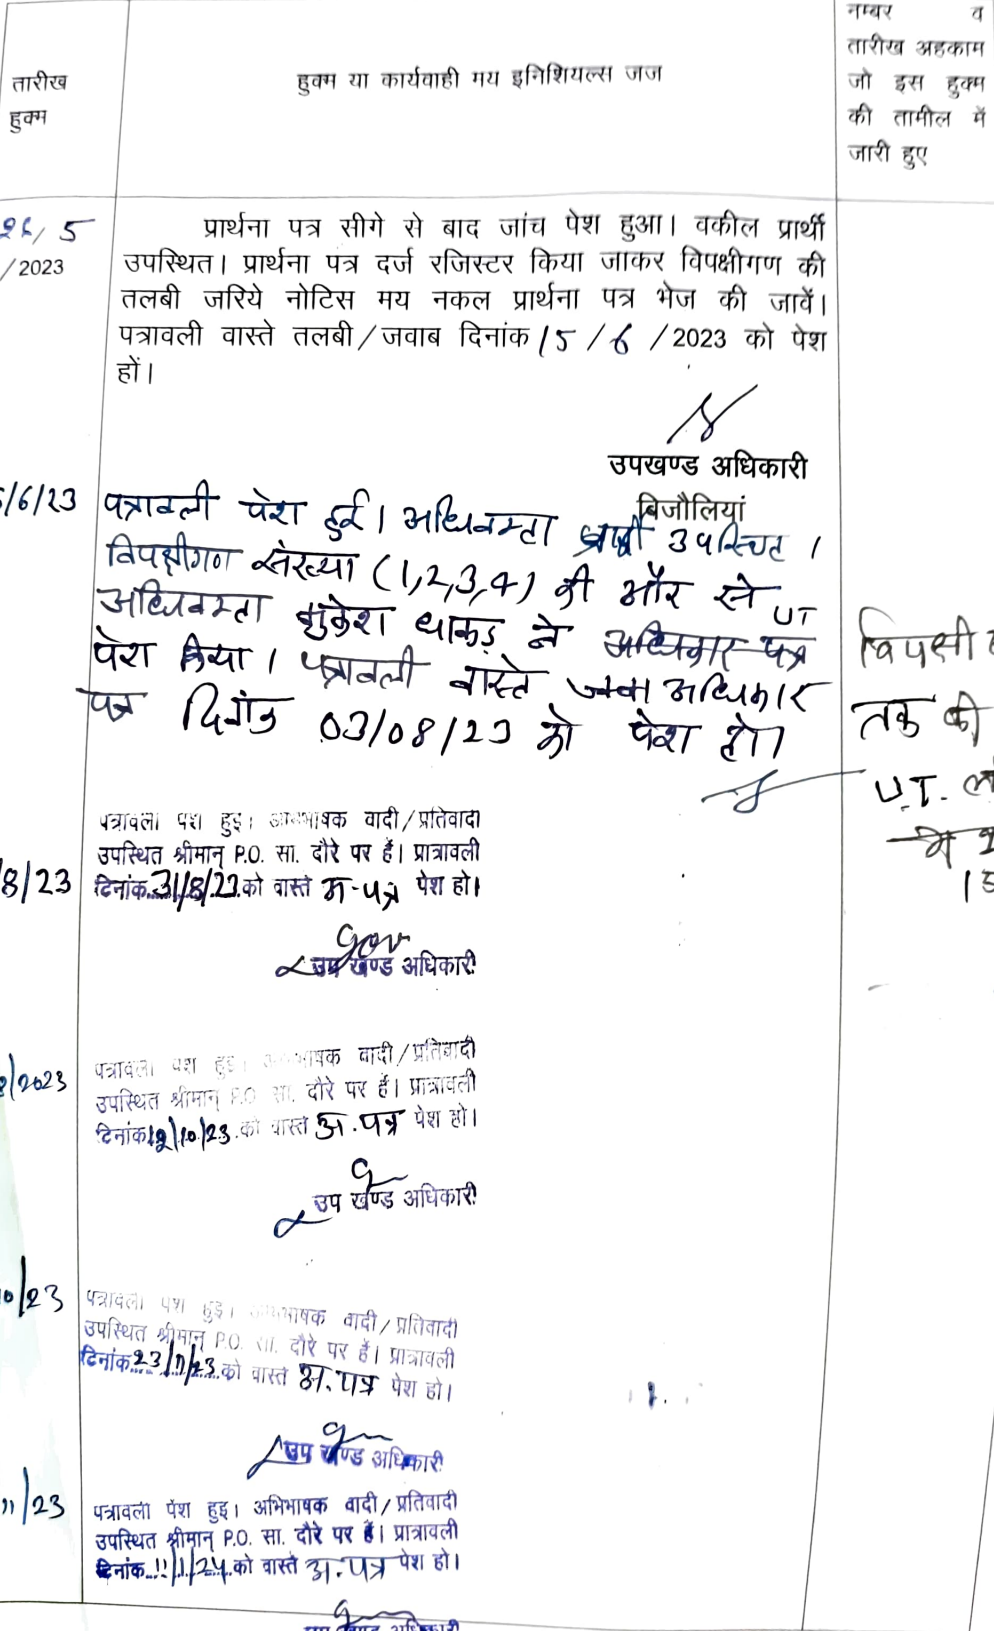 तारीख
हुक्म
हुक्म या कार्यवाही मय इनिशियल्स जज
नम्बर व
तारीख अहकाम
जो इस हुक्म
की तामील में
जारी हुए
26/5
/2023
प्रार्थना पत्र सीगे से बाद जांच पेश हुआ। वकील प्रार्थी
उपस्थित। प्रार्थना पत्र दर्ज रजिस्टर किया जाकर विपक्षीगण की
तलबी जरिये नोटिस मय नकल प्रार्थना पत्र भेज की जावें।
पत्रावली वास्ते तलबी/जवाब दिनांक 15/6/2023 को पेश
हों।
उपखण्ड अधिकारी
बिजौलियां
/6/23
पत्रावली पेश हुई। अधिवक्ता प्रार्थी उपस्थित।
विपक्षीगण संख्या (1,2,3,4) की और से
अधिवक्ता मुकेश धाकड़ ने UT अधिकार पत्र
पेश किया। पत्रावली वास्ते अधिकार
पत्र दिनांक 03/08/23 को पेश हो।
विपक्षी
तक की
U.T.
में
15
/8/23
पत्रावली पेश हुइ। अभिभाषक वादी/प्रतिवादी
उपस्थित श्रीमान् P.O. सा. दौरे पर हैं। प्रात्रावली
दिनांक 31/8/23 को वास्ते अ-पत्र पेश हो।
उप खण्ड अधिकारी
/2023
पत्रावली पेश हुइ। अभिभाषक वादी/प्रतिवादी
उपस्थित श्रीमान् P.O. सा. दौरे पर हैं। प्रात्रावली
दिनांक 12/10/23 को वास्ते अ.पत्र पेश हो।
उप खण्ड अधिकारी
0/23
पत्रावली पेश हुइ। अभिभाषक वादी/प्रतिवादी
उपस्थित श्रीमान् P.O. सा. दौरे पर हैं। प्रात्रावली
दिनांक 23/11/23 को वास्ते अ.पत्र पेश हो।
उप खण्ड अधिकारी
11/23
पत्रावली पेश हुइ। अभिभाषक वादी/प्रतिवादी
उपस्थित श्रीमान् P.O. सा. दौरे पर हैं। प्रात्रावली
दिनांक 11/1/24 को वास्ते अ.पत्र पेश हो।
उप खण्ड अधिकारी